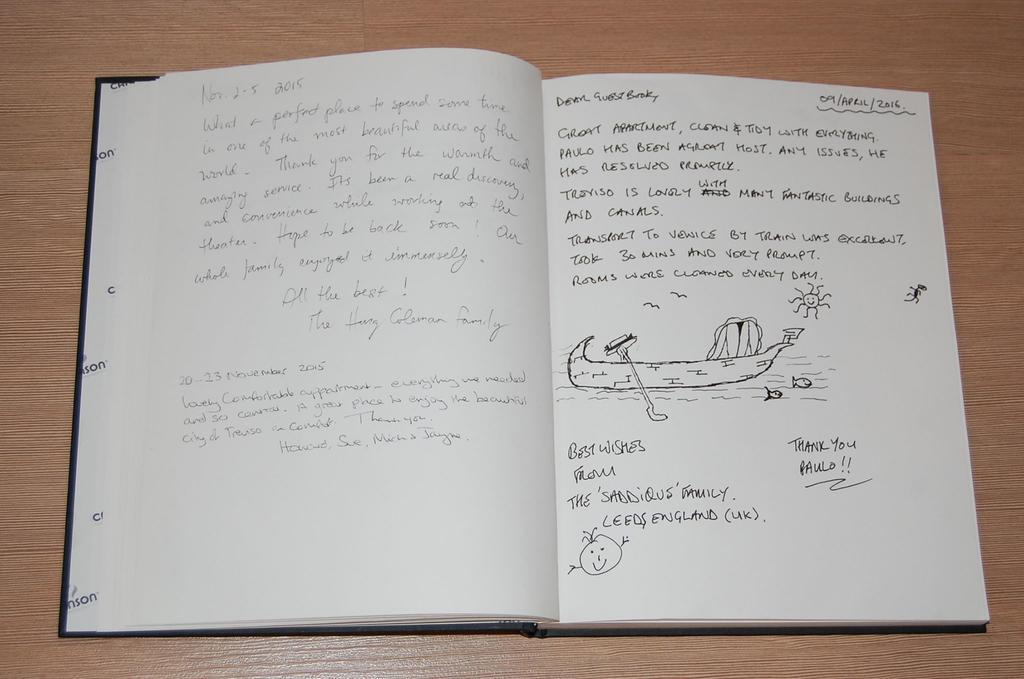 Nov. 2-5 2015
What a perfect place to spend some time
in one of the most beautiful areas of the
world. Thank you for the warmth and
amazing service. Its been a real discovery,
and convenience while working at the
theater. Hope to be back soon! Our
whole family enjoyed it immensely.
All the best!
The Coleman Family
20-23 November 2015
Lovely comfortable appartment - everything we needed
and so central. A great place to enjoy the beautiful
city of Treviso in comfort. Thank you.
Howard, Sue,
DEAR GUESTBOOK,
09/APRIL/2016.
GREAT APARTMENT, CLEAN & TIDY WITH EVERYTHING.
PAULO HAS BEEN A GREAT HOST. ANY ISSUES, HE
HAS RESOLVED PROMPTLY.
TREVISO IS LOVELY WITH MANY FANTASTIC BUILDINGS
AND CANALS.
TRANSPORT TO VENICE BY TRAIN WAS EXCELLENT.
TOOK 30 MINS AND VERY PROMPT.
ROOMS WERE CLEANED EVERY DAY.
BEST WISHES
FROM
THE 'SADDIQUS' FAMILY.
LEEDS, ENGLAND (UK).
THANK YOU
PAULO!!